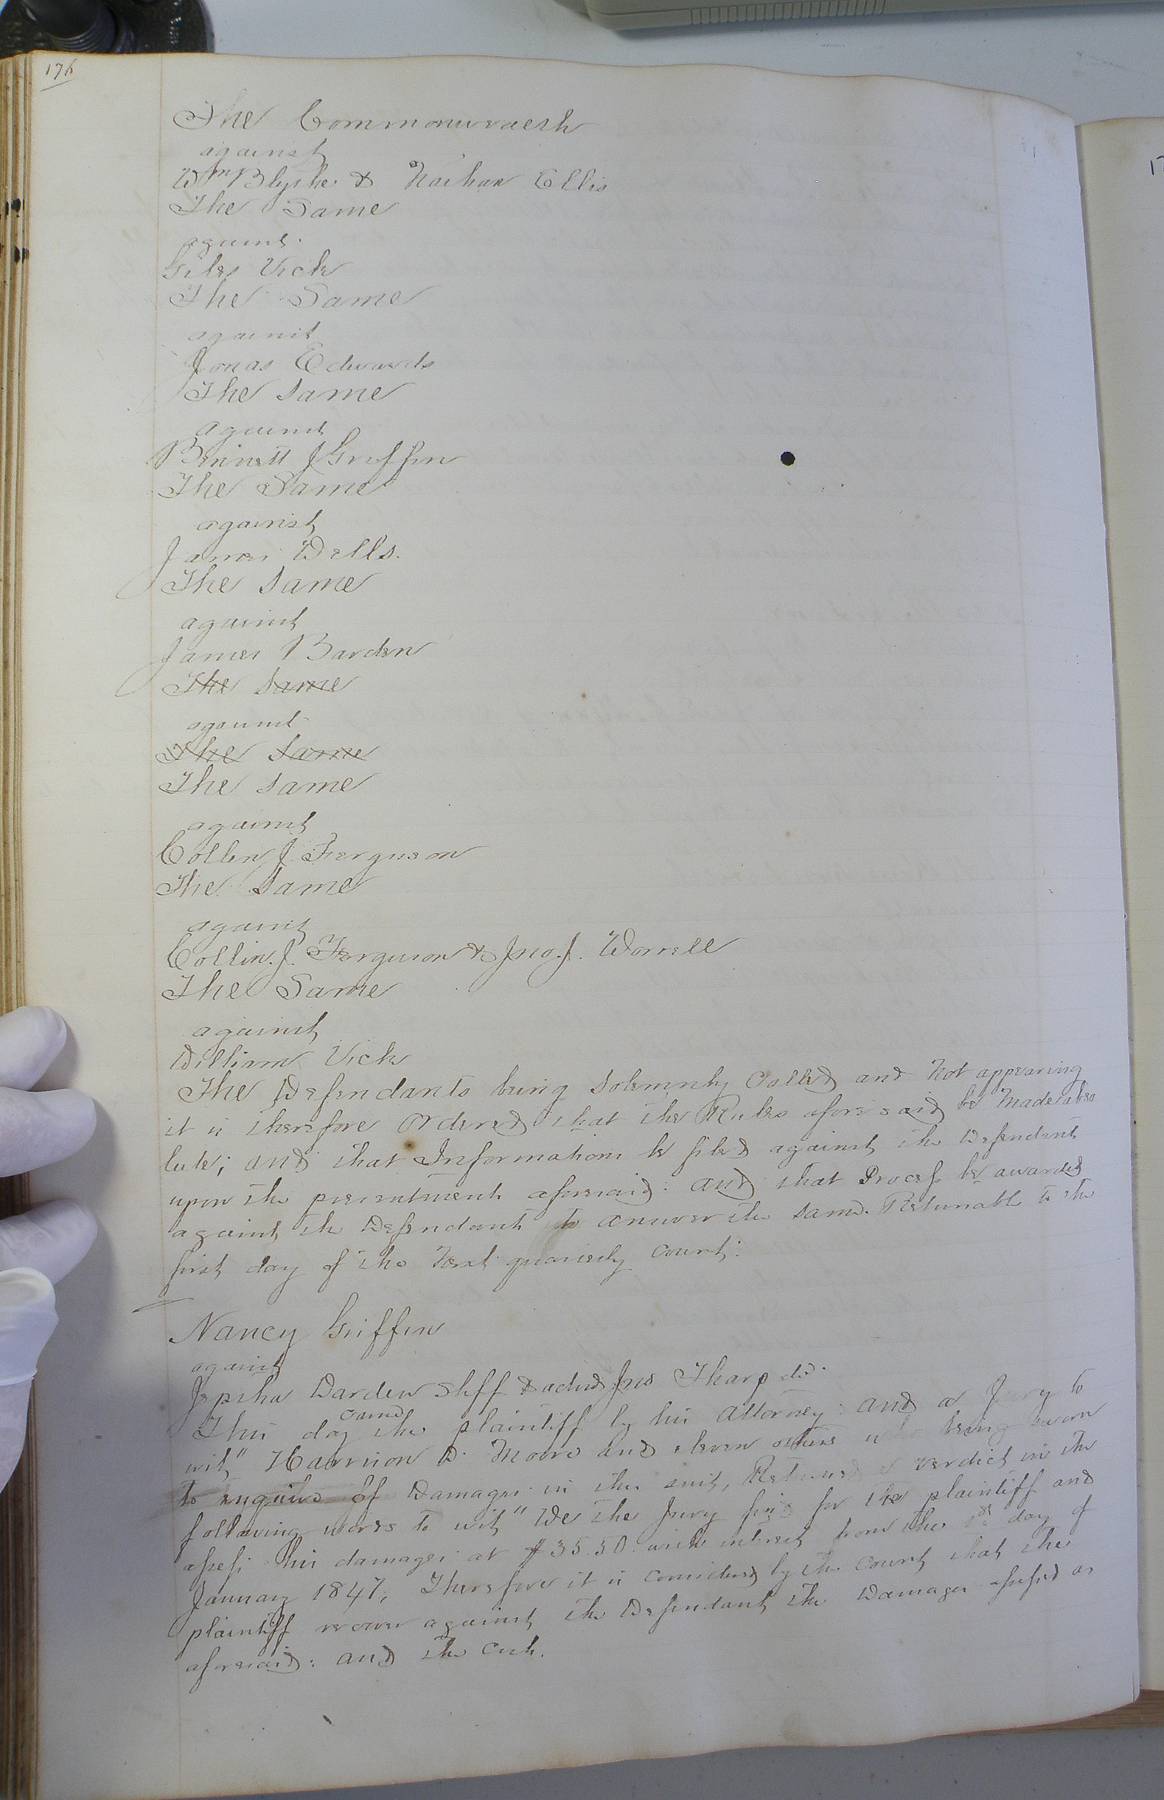 176
The Commonwraesh
against
Wm Blythe & Nathan Ellis
The Same
against
Giles Vick
The Same
against
Jonas Edwards
The Same
against
Bennett J Griffin
The Same
against
James Wells.
The Same
against
James Barden
The Same
against
The Same
The Same
against
Collin J Ferguson
The Same
against
Collin. J. Ferguson & Jno. J. Worrell
The Same
against
William Vick
The Defendants being solemnly Called and not appearing
it is therefore ordered that the Rules aforesaid be made abso
lute; and that Informations be filed against the Defendants
upon the presentments aforesaid: and that Process be awarded
against the Defendants to answer the same. Returnable to the
first day of the next quarterly court:
Nancy Griffin
against
Jepsha Darden Shff & admr Jno Tharp dd.
This day came the plaintiff by his attorney and a Jury to
wit" Harrison D. Moore and eleven others who being sworn
to enquire of Damages in this suit, Returned a verdict in the
following words to wit" We the Jury find for the plaintiff and
assess his damages at $35.50 with interest from the 1st day of
January 1847, Therefore it is considered by the court that the
plaintiff recover against the Defendant the Damages assessed as
aforesaid: and the cost.